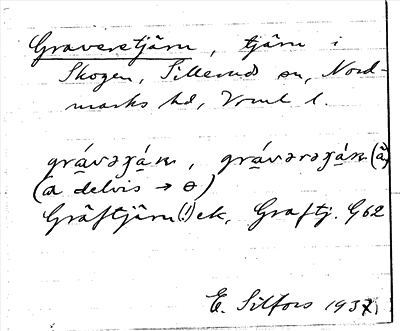 Graverstjärn, tjärn i
Skogen, Sillerud sn, Nord-
marks hd, Vrml l.
grávəʒán, grávərʒán (ä)
(a delvis → ɵ)
Gräftjärn (!) ek, Graftj. G62
E. Silfors 1937